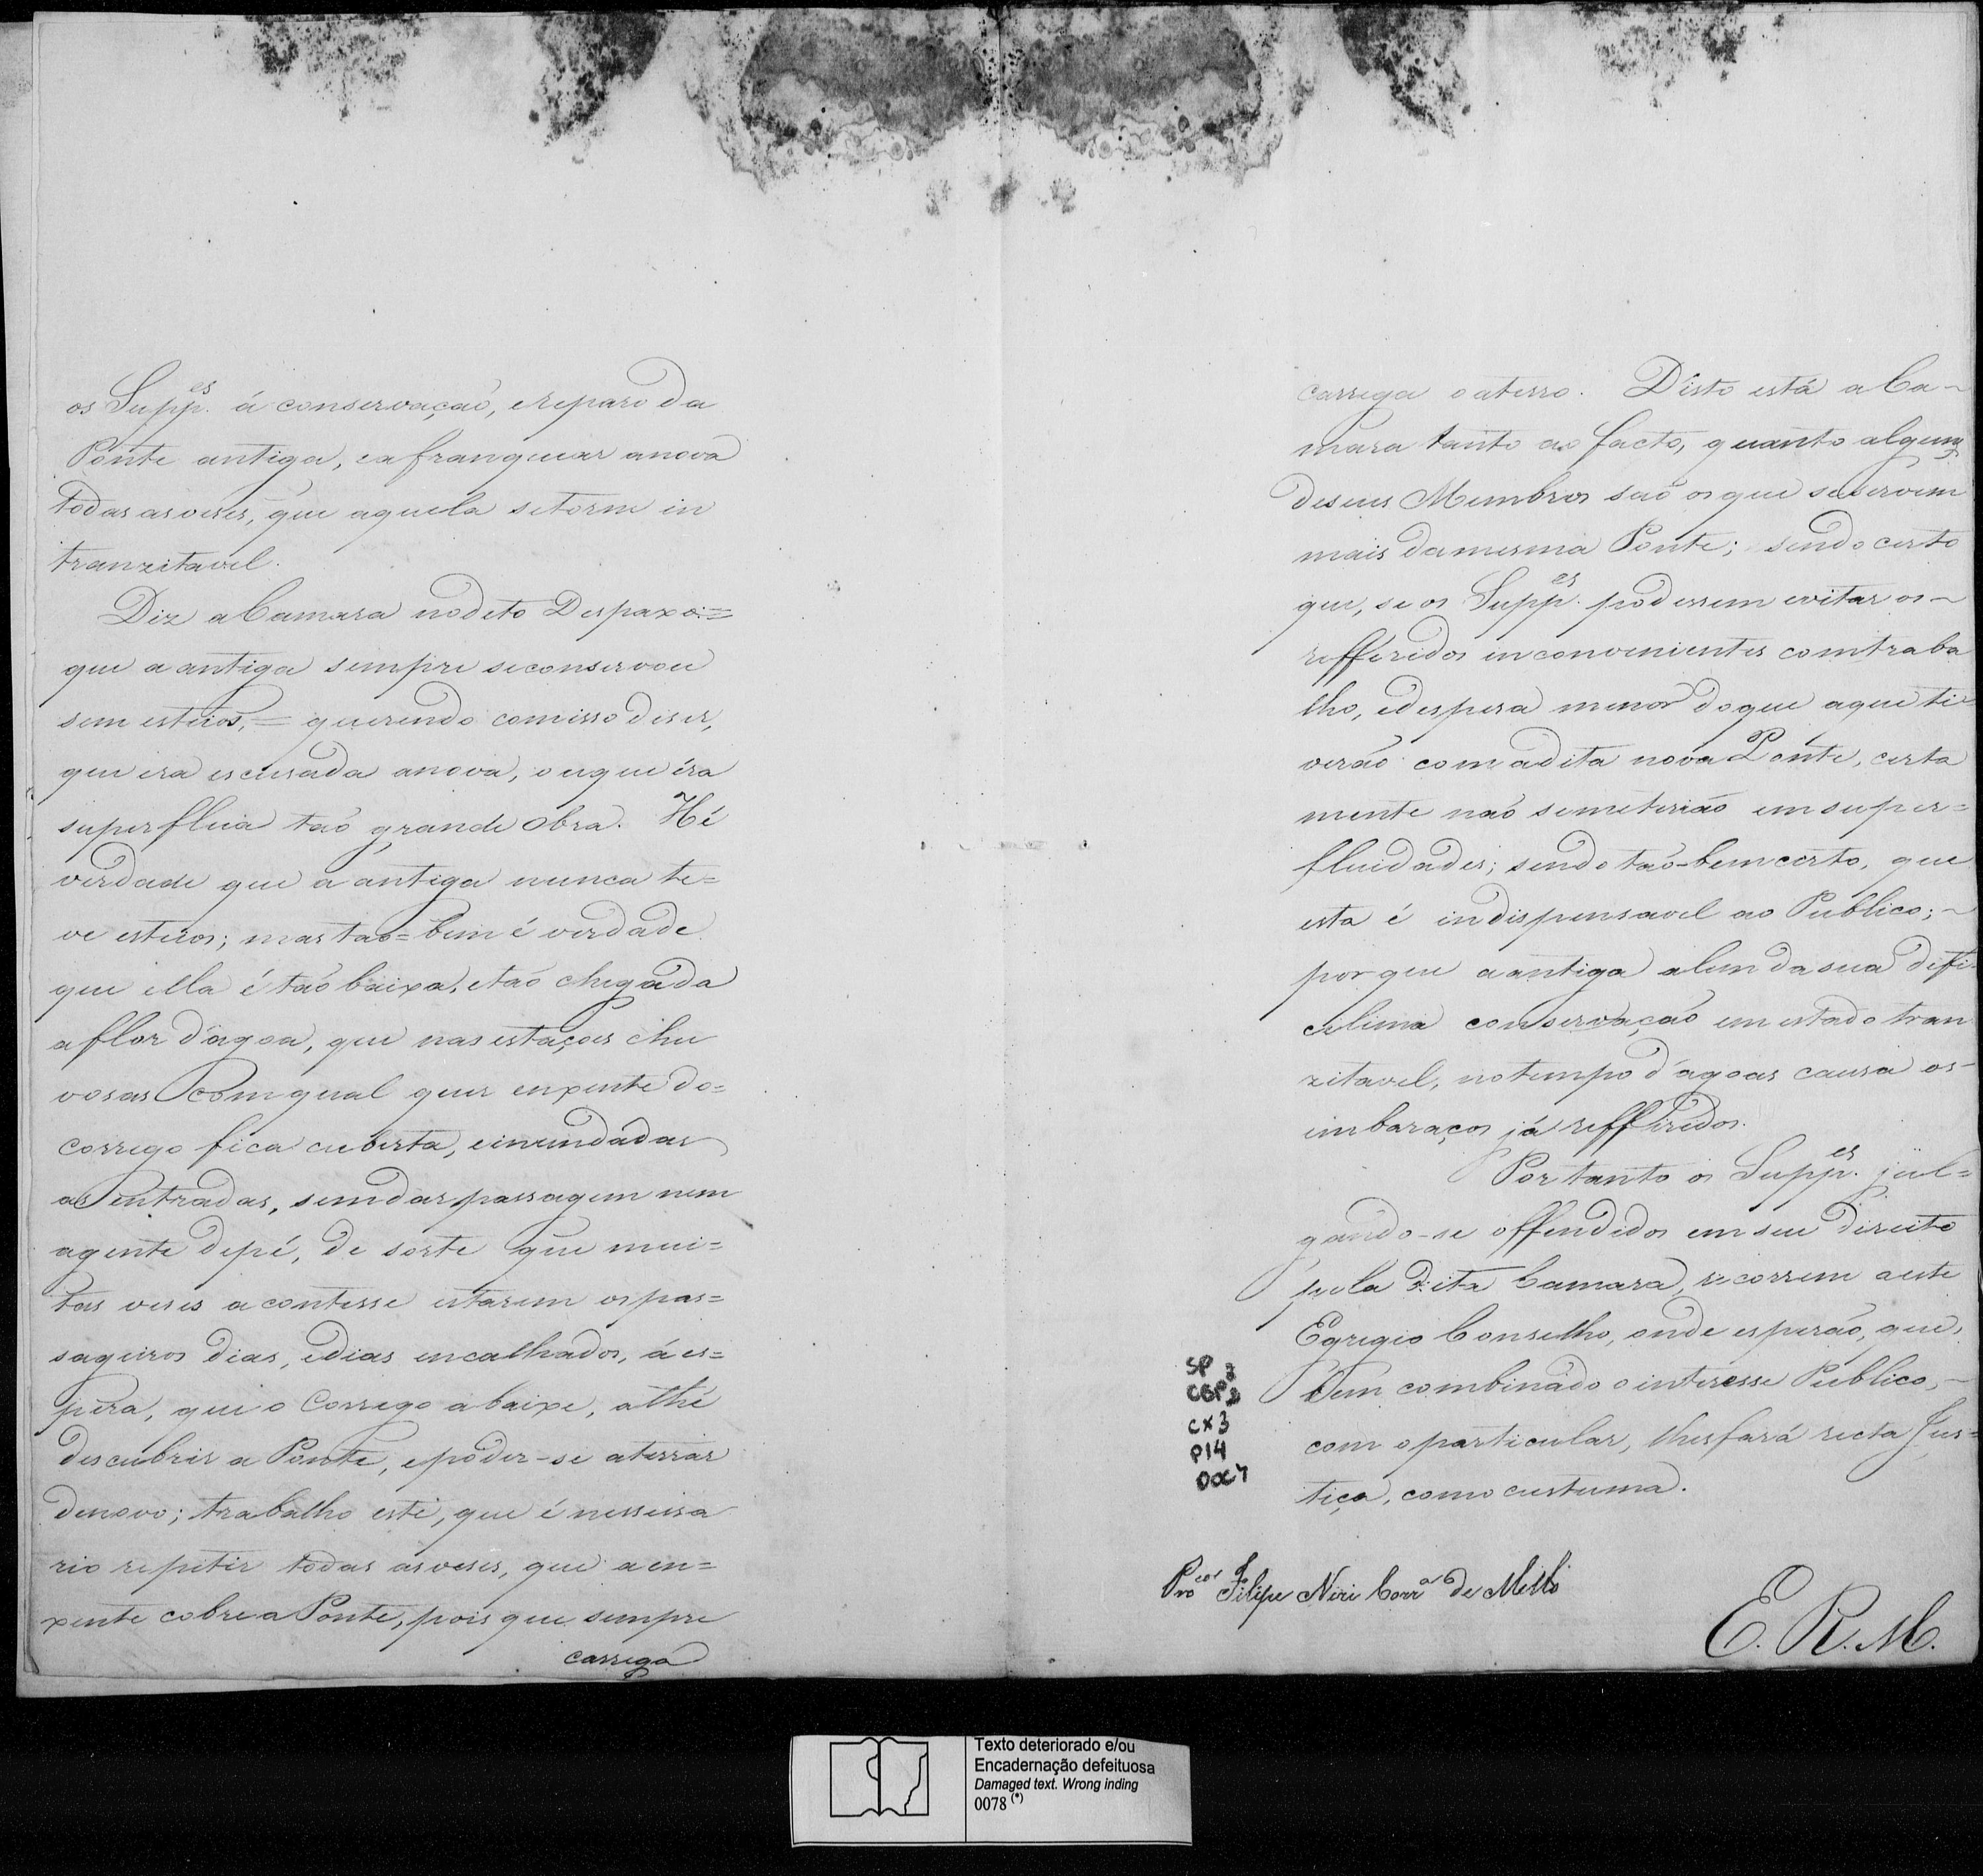 os Supp.es á conservação, e reparo da
Ponte antiga, e a franquear a nova
todas as veses, que aquela se torne in
tranzitavel.
Diz a Camara no deto Despaxo:=
que a antiga sempre se conservou
sem esteios,= querendo com isso diser,
que era escusada a nova, ou que éra
superflua taõ grande obra. Hé
verdade que a antiga nunca te=
ve esteios; mas taõ=bem é verdade
que ella é taõ baixa, e taõ chegada
a flor d'agoa, que nas estaçoes chu
vosas com qual quer enxente do=
corrego fica cuberta, e inundadas
as entradas, sem dar passagem nem
a gente de pé, de sorte que mui=
tas veses a contesse estarem os pas=
sageiros dias, e dias encalhados, á es=
pera, que o Corrego abaixe, athé
descubrir a Ponte, e poder-se aterrar
denovo; trabalho este, que é nessessa
rio repetir todas as veses, que a en=
xente cobre a Ponte, pois que sempre
carrega
carrega o aterro. Disto está a Ca-
mara tanto ao facto, quanto alguns
de seus Membros saõ os que se servem
mais da mesma Ponte; sendo certo
que, se os Supp.es podessem evitar os-
refferidos inconvenientes com traba
lho, e despesa menor do que a que ti=
veraõ com a dita nova Ponte, certa
mente naõ se meteriaõ em super=
fluidades; sendo taõ-bem certo, que
esta é indispensavel ao Publico;-
por que a antiga alem da sua defi-
celima conservaçaõ em estado tran
zitavel, no tempo d'agoas causa os-
imbaraços já refferidos.
Por tanto os Supp.es jul=
gando-se offendidos em seu Direito
pela dita Camara, recorrem a este
Egregio Conselho, onde esperaõ, que,
bem combinado o interesse Publico,-
com o particular, lhes fará recta Jus=
tiça, como custuma.
SP
CGP3
CX3
P14
DOC4
Filipe Neri Corr.a de Mello
E. R. M.
Texto deteriorado e/ou
Encadernação defeituosa
Damaged text. Wrong inding
0078 (*)